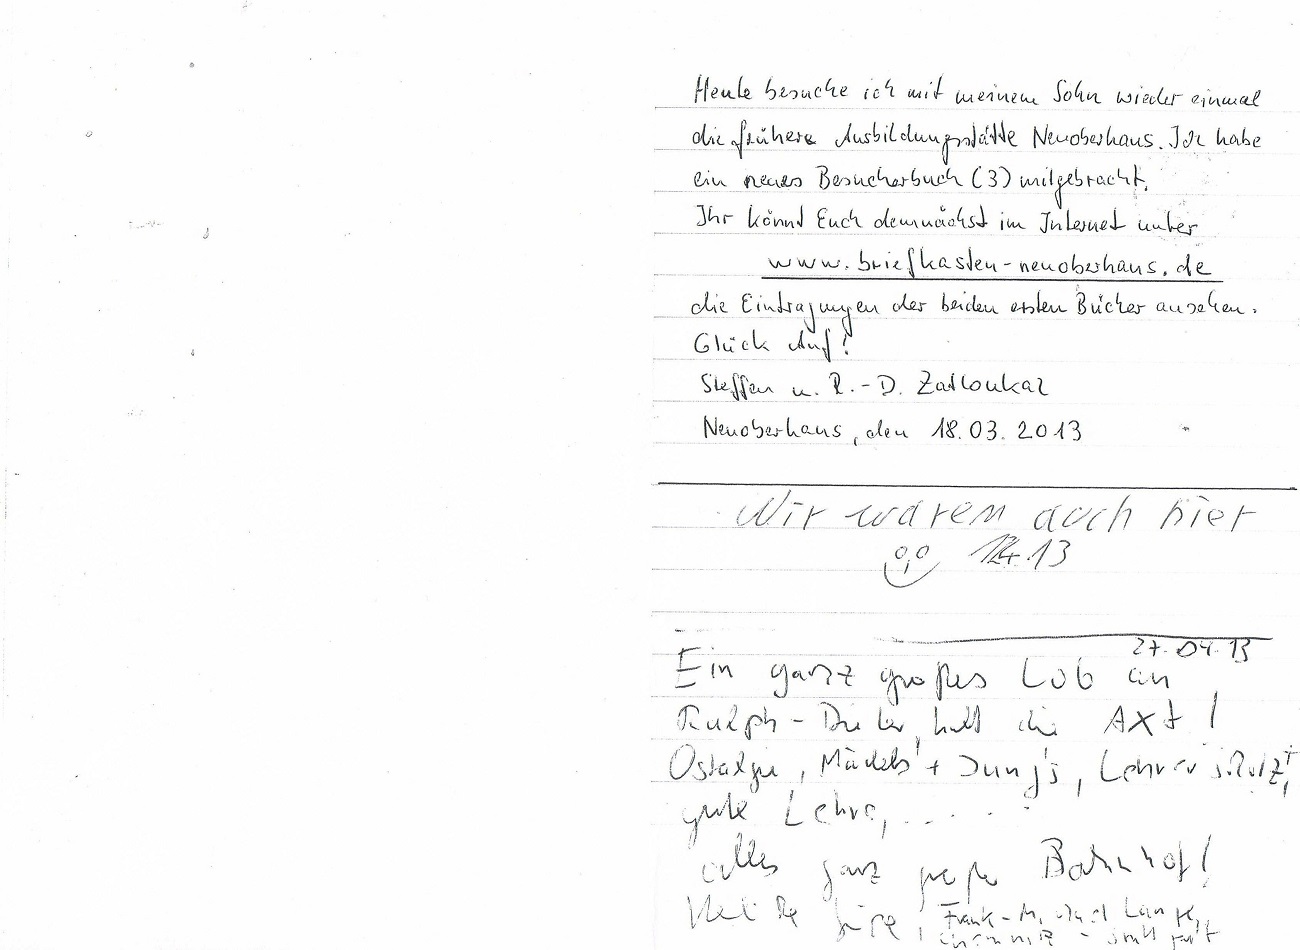 Heute besuche ich mit meinem Sohn wieder einmal
die frühere Ausbildungsstätte Neuoberhaus. Ich habe
ein neues Besucherbuch (3) mitgebracht.
Ihr könnt Euch demnächst im Internet unter
www.briefkasten-neuoberhaus.de
die Eintragungen der beiden ersten Bücher ansehen.
Glück Auf!
Steffen u. R.-D. Zatloukal
Neuoberhaus, den 18.03.2013
Wir waren auch hier
.13
27.04.13
Ein ganz großes Lob an
die AXt!
Ostalgie, Mädels + Jung's, Lehrer
gute Lehre, .....
alles ganz großer Bahnhof!
Frank-Michael